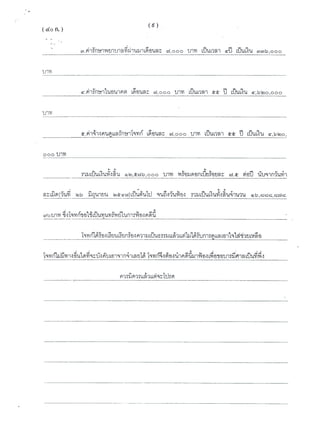 ( ๕ )
( ๔๐ ก. )
๓.ค่ารักษาพยาบาลที่ผ่านมาเดือนละ ๘,๐๐๐ บาท เป็นเวลา ๔ปี เป็นเงิน ๓๓๖,๐๐๐
บาท
๔.ค่ารักษาในอนาคต เดือนละ ๗,๐๐๐ บาท เป็นเวลา ๕๕ ปี เป็นเงิน ๔,๖๒๐,๐๐๐
บาท
๕.ค่าจ้างคนดูแลรักษาโจทก์ เดือนละ ๗,๐๐๐ บาท เป็นเวลา ๕๕ ปี เป็นเงิน ๔,๖๒๐,
๐๐๐ บาท
รวมเป็นเงินทั้งสิ้น บาท พร้อมดอกเบี้ยร้อยละ ๗.๕ ต่อปี นับจากวันทำ
ละเมิด(วันที่ ๒๖ มิถุนายน เป็นต้นไป จนถึงวันฟ้อง รวมเป็นเงินทั้งสิ้นจำนวน
บาท ซึ่งโจทก์ขอใช้เป็นทุนทรัพย์ในการฟ้องคดีนี้
โจทก์ได้ร้องเรียนเรียกร้องความเป็นธรรมแล้วแต่ไม่ได้รับการดูแลเอาใจใส่ช่วยเหลือ
โจทก์ไม่มีทางอื่นใดที่จะบังคับเอาจากจำเลยได้ โจทก์จึงต้องนำคดีนี้มาฟ้องเพื่อขอบารมีศาลเป็นที่พึ่ง
ควรมิควรแล้วแต่จะโปรด